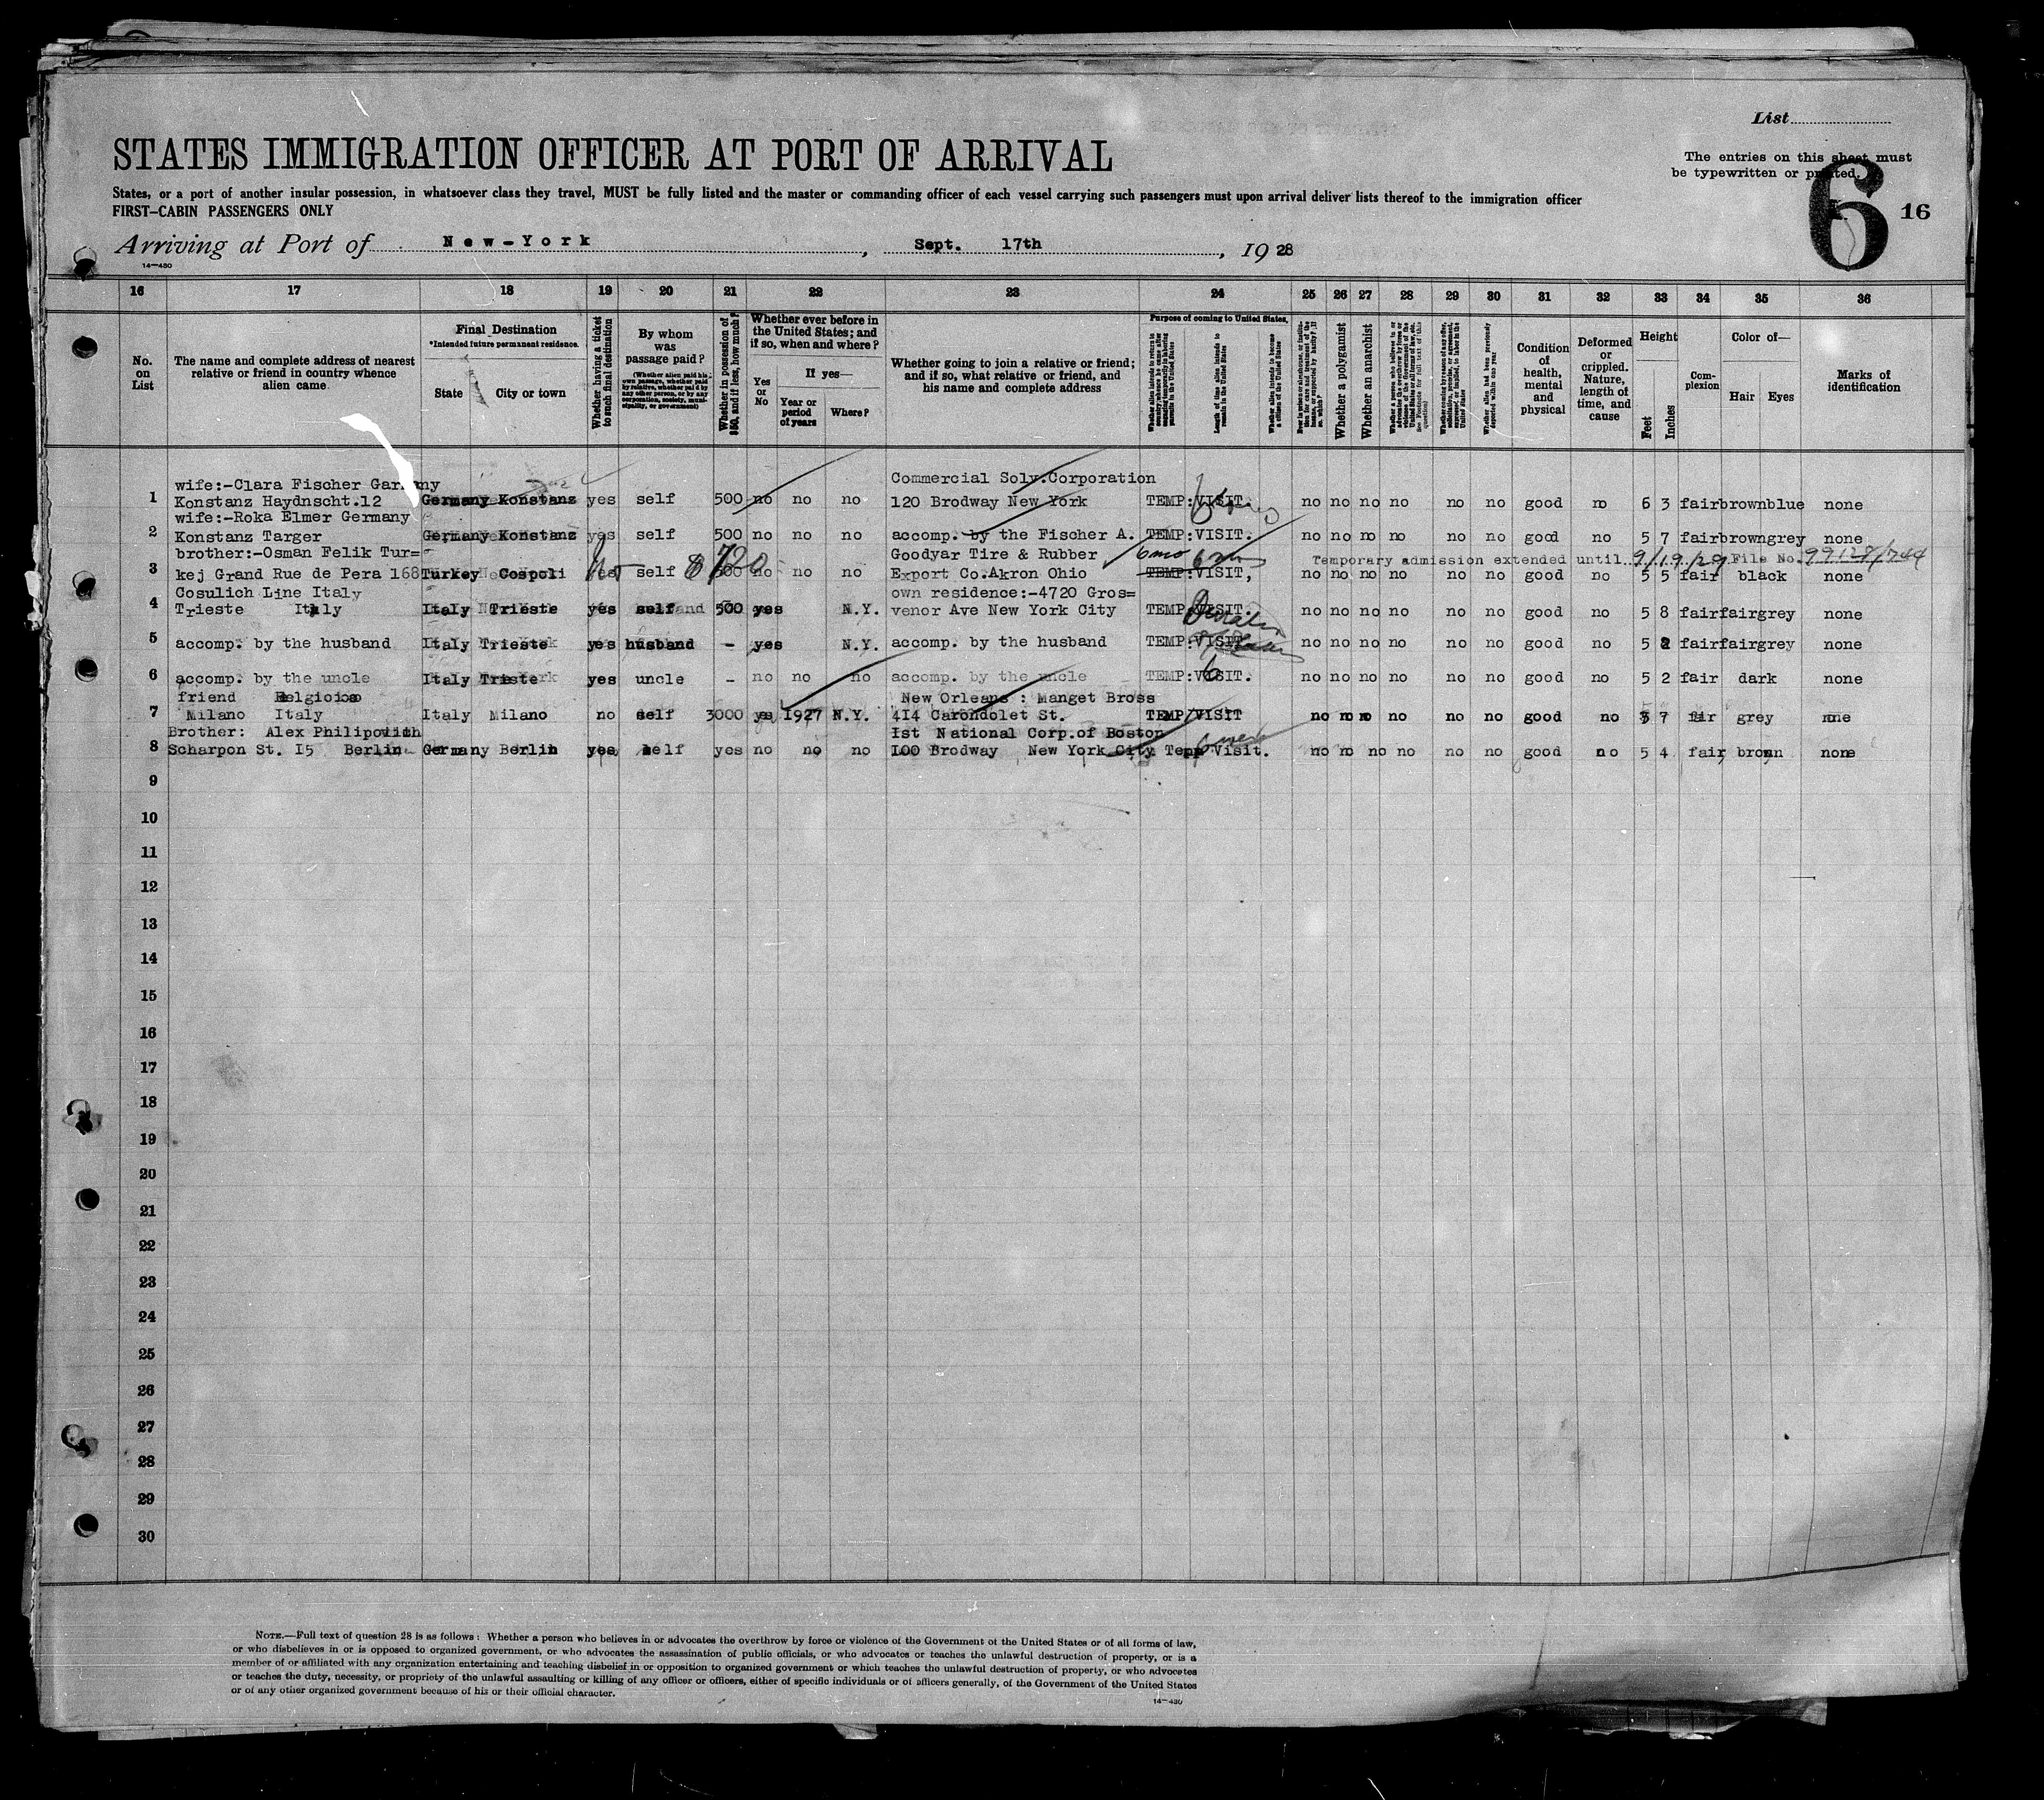 List
STATES IMMIGRATION OFFICER AT PORT OF ARRIVAL
The entries on this sheet must
be typewritten or printed.
States, or a port of another insular possession, in whatsoever class they travel, MUST be fully listed and the master or commanding officer of each vessel carrying such passengers must upon arrival deliver lists thereof to the immigration officer
FIRST-CABIN PASSENGERS ONLY
6 16
Arriving at Port of New-York, Sept. 17th, 1928
14-430
16 17 18 19 20 21 22 23 24 25 26 27 28 29 30 31 32 33 34 35 36
No. on List
The name and complete address of nearest relative or friend in country whence alien came
Final Destination
*Intended future permanent residence.
State City or town
Whether having a ticket to such final destination
By whom was passage paid?
(Whether alien paid his own passage, whether paid by relative, whether paid by any other person, or by any corporation, society, municipality, or government)
Whether in possession of $50, and if less, how much?
Whether ever before in the United States; and if so, when and where?
Yes or No
If yes—
Year or period of years
Where?
Whether going to join a relative or friend; and if so, what relative or friend, and his name and complete address
Purpose of coming to United States.
Length of time alien intends to remain in the United States
Whether alien intends to become a citizen of the United States
Whether a polygamist
Whether an anarchist
Whether alien had been previously deported within one year
Condition of health, mental and physical
Deformed or crippled. Nature, length of time, and cause
Height
Feet Inches
Complexion
Color of—
Hair Eyes
Marks of identification
wife:-Clara Fischer Garmany Commercial Solv.Corporation
1 Konstanz Haydnscht.12 Germany Konstanz yes self 500 no no no 120 Brodway New York TEMP:VISIT. no no no no no no good no 6 3 fair brown blue none
wife:-Roka Elmer Germany
2 Konstanz Targer Germany Konstanz yes self 500 no no no accomp. by the Fischer A. TEMP:VISIT. no no no no no no good no 5 7 fair brown grey none
brother:-Osman Felik Tur= Goodyar Tire & Rubber 6mo Temporary admission extended until 9/19/29 File No. 99127/744
3 kej Grand Rue de Pera 168 Turkey Cospoli yes self $720 no no no Export Co.Akron Ohio TEMP:VISIT, no no no no no no good no 5 5 fair black none
Cosulich Line Italy own residence:-4720 Gros=
4 Trieste Italy Italy Trieste yes self 500 yes N.Y. venor Ave New York City TEMP:VISIT. no no no no no no good no 5 8 fair fair grey none
5 accomp. by the husband Italy Trieste yes husband - yes N.Y. accomp. by the husband TEMP:VISIT no no no no no no good no 5 2 fair fair grey none
6 accomp. by the uncle Italy Trieste yes uncle - no no no accomp. by the uncle TEMP:VISIT. no no no no no no good no 5 2 fair dark none
friend New Orleans : Manget Bross
7 Milano Italy Italy Milano no self 3000 yes 1927 N.Y. 414 Carondolet St. TEMP/VISIT no no no no no no good no 5 7 fair grey none
Brother: Alex Philipovitch Ist National Corp.of Boston
8 Scharpon St. I5 Berlin Germany Berlin yes self yes no no no I00 Brodway New York City Temp Visit. no no no no no no good no 5 4 fair brown none
9
10
11
12
13
14
15
16
17
18
19
20
21
22
23
24
25
26
27
28
29
30
NOTE.—Full text of question 28 is as follows: Whether a person who believes in or advocates the overthrow by force or violence of the Government of the United States or of all forms of law,
or who disbelieves in or is opposed to organized government, or who advocates the assassination of public officials, or who advocates or teaches the unlawful destruction of property, or is a
member of or affiliated with any organization entertaining and teaching disbelief in or opposition to organized government or which teaches the unlawful destruction of property, or who advocates
or teaches the duty, necessity, or propriety of the unlawful assaulting or killing of any officer or officers, either of specific individuals or of officers generally, of the Government of the United States
or of any other organized government because of his or their official character.
14-430